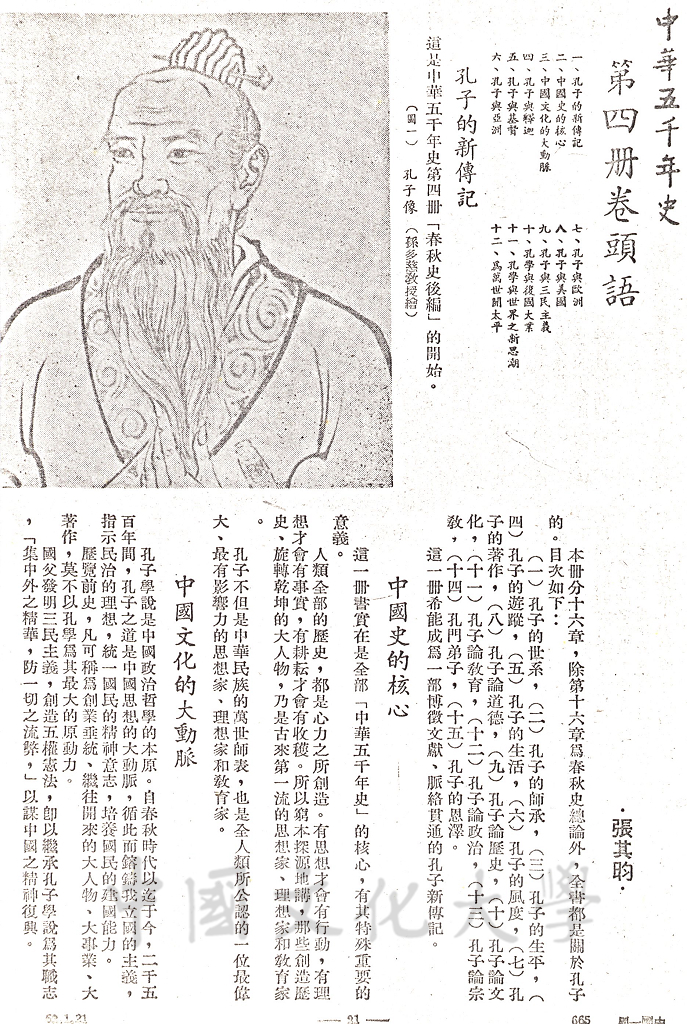 中華五千年史
第四册卷頭語
一、孔子的新傳記
二、中國史的核心
三、中國文化的大動脈
四、孔子與釋迦
五、孔子與基督
六、孔子與亞洲
七、孔子與歐洲
八、孔子與美國
九、孔子與三民主義
十、孔學與復國大業
十一、孔學與世界之新思潮
十二、爲萬世開太平
孔子的新傳記
這是中華五千年史第四冊「春秋史後編」的開始。
(圖一) 孔子像(孫多慈敎授繪)
·張其昀·
本册分十六章,除第十六章爲春秋史總論外,全書都是關於孔子
的。目次如下:
(一)孔子的世系,(二)孔子的師承,(三)孔子的生平,(
四)孔子的遊蹤,(五)孔子的生活,(六)孔子的風度,(七)孔
子的著作,(八)孔子論道德,(九)孔子論歷史,(十)孔子論文
化,(十一)孔子論敎育,(十二)孔子論政治,(十三)孔子論宗
敎,(十四)孔門弟子,(十五)孔子的恩澤。
這一冊希能成爲一部博徵文獻、脈絡貫通的孔子新傳記。
中國史的核心
這一冊書實在是全部「中華五千年史」的核心,有其特殊重要的
意義。
人類全部的歷史,都是心力之所創造。有思想才會有行動,有理
想才會有事實,有耕耘才會有收穫。所以窮本探源地講,那些創造歷
史、旋轉乾坤的大人物,乃是古來第一流的思想家、理想家和敎育家
。
孔子不但是中華民族的萬世師表,也是全人類所公認的一位最偉
大、最有影響力的思想家、理想家和敎育家。
中國文化的大動脈
孔子學說是中國政治哲學的本原。自春秋時代以迄于今,二千五
百年間,孔子之道是中國思想的大動脈,循此而鎔鑄我立國的主義,
指示民治的理想,統一國民的精神意志,培養國民的建國能力。
歷覽前史,凡可稱爲創業垂統、繼往開來的大人物、大事業、大
著作,莫不以孔學爲其最大的原動力。
國父發明三民主義,創造五權憲法,卽以繼承孔子學說爲其職志
,「集中外之精華,防一切之流弊,」以謀中國之精神復興。
中國文化大學
— 31 —
665